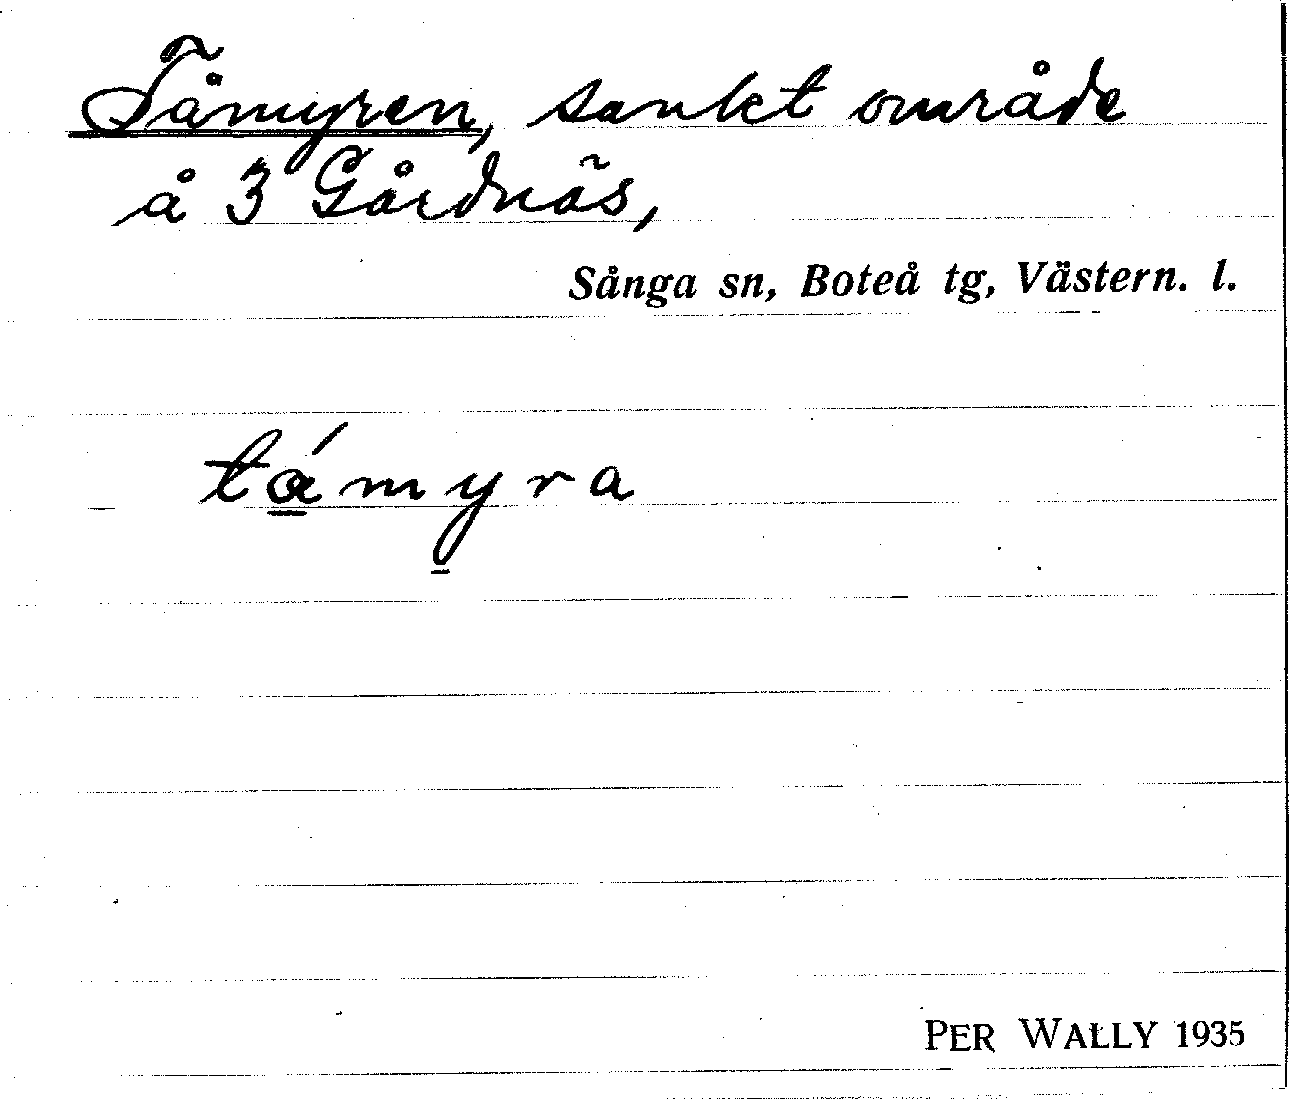 Tåmyren, sankt område
å 3 Gårdnäs,
Sånga sn, Boteå tg, Västern. l.
tá̱my̱ra
PER WALLY 1935